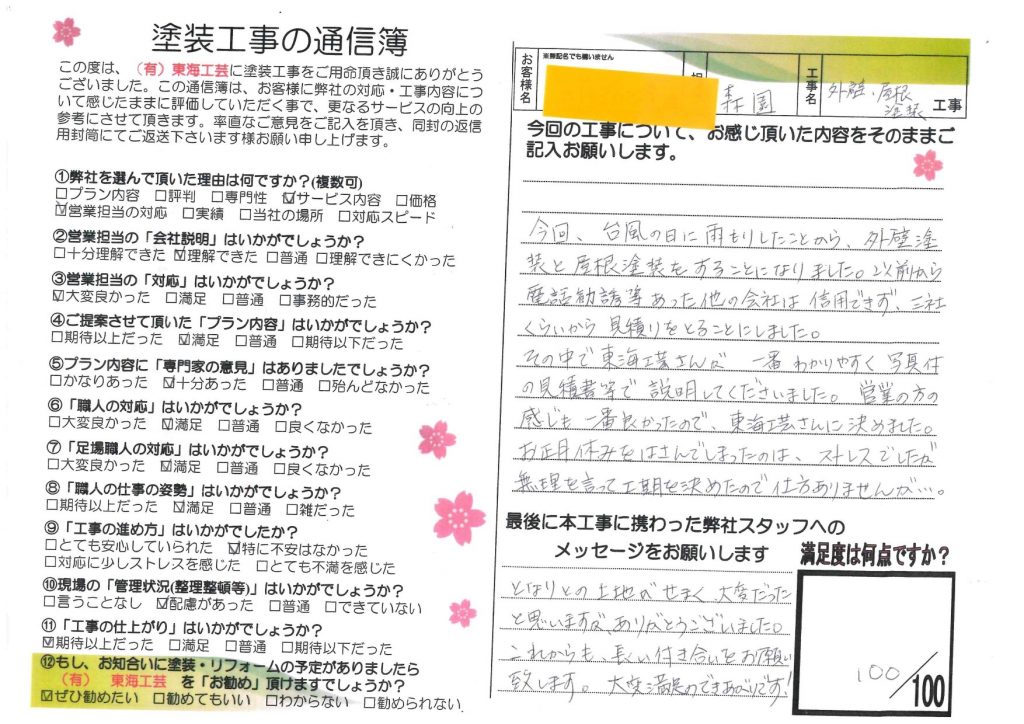 塗装工事の通信簿
この度は、（有）東海工芸に塗装工事をご用命頂き誠にありがとう
ございました。この通信簿は、お客様に弊社の対応・工事内容につ
いて感じたままに評価していただく事で、更なるサービスの向上の
参考にさせて頂きます。率直なご意見をご記入を頂き、同封の返信
用封筒にてご返送下さいます様お願い申し上げます。
①弊社を選んで頂いた理由は何ですか？(複数可)
□プラン内容 □評判 □専門性 ☑サービス内容 □価格
☑営業担当の対応 □実績 □当社の場所 □対応スピード
②営業担当の「会社説明」はいかがでしょうか？
□十分理解できた ☑理解できた □普通 □理解できにくかった
③営業担当の「対応」はいかがでしょうか？
☑大変良かった □満足 □普通 □事務的だった
④ご提案させて頂いた「プラン内容」はいかがでしょうか？
□期待以上だった ☑満足 □普通 □期待以下だった
⑤プラン内容に「専門家の意見」はありましたでしょうか？
□かなりあった ☑十分あった □普通 □殆んどなかった
⑥「職人の対応」はいかがでしょうか？
□大変良かった ☑満足 □普通 □良くなかった
⑦「足場職人の対応」はいかがでしょうか？
□大変良かった ☑満足 □普通 □良くなかった
⑧「職人の仕事の姿勢」はいかがでしょうか？
□期待以上だった ☑満足 □普通 □雑だった
⑨「工事の進め方」はいかがでしたか？
□とても安心していられた ☑特に不安はなかった
□対応に少しストレスを感じた □とても不満を感じた
⑩現場の「管理状況(整理整頓等)」はいかがでしょうか？
□言うことなし ☑配慮があった □普通 □できていない
⑪「工事の仕上がり」はいかがでしょうか？
☑期待以上だった □満足 □普通 □期待以下だった
⑫もし、お知合いに塗装・リフォームの予定がありましたら
（有） 東海工芸 を「お勧め」頂けますでしょうか？
☑ぜひ勧めたい □勧めてもいい □わからない □勧められない
お客様名
※無記名でも構いません
担
森園
工事名
外壁・屋根
塗装
工事
今回の工事について、お感じ頂いた内容をそのままご
記入お願いします。
今回、台風の日に雨もりしたことから、外壁塗
装と屋根塗装をすることになりました。以前から
電話勧誘等あった他の会社は信用できず、三社
くらいから見積りをとることにしました。
その中で東海工芸さんが 一番わかりやすく写真付
の見積書等で説明してくださいました。営業の方の
感じも一番良かったので、東海工芸さんに決めました。
お正月休みをはさんでしまったのは、ストレスでしたが
無理を言って工期を決めたので仕方ありませんが…。
最後に本工事に携わった弊社スタッフへの
メッセージをお願いします
となりとの土地がせまく、大変だった
と思いますが、ありがとうございました。
これからも、長い付き合いをお願い
致します。大変満足のできあがりです！
満足度は何点ですか？
100／100